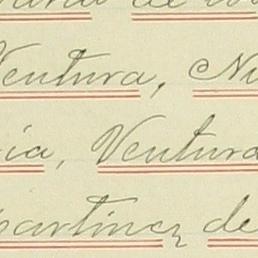 de
Ventura, Nu
ia, Ventura
Martinez de